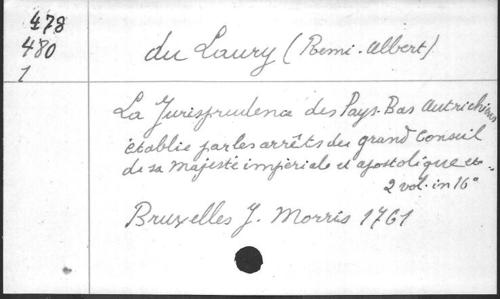 478
480
1
du Laury (Remi-Albert)
La Jurisprudence des Pays-Bas Autrichiens
établie par les arrêts du grand Conseil
de sa Majesté impériale et apostolique etc.
2 vol. in 16°
Bruxelles J. Morris 1761